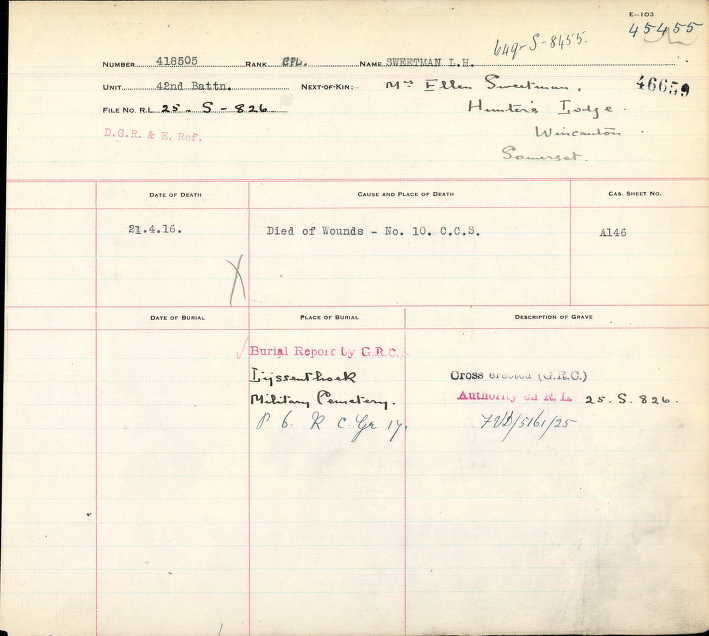 E-103
45455
649-S-8455.
NUMBER 418505 RANK CPL. NAME SWEETMAN L.H.
UNIT 42nd Battn. NEXT-OF-KIN:- Mrs Ellen Sweetman,
46659
FILE NO. R.L. 25-S-826 Hunter's Lodge
D.G.R. & E. Ref. Wincanton
Somerset.
DATE OF DEATH CAUSE AND PLACE OF DEATH CAS. SHEET NO.
21.4.16. Died of Wounds - No. 10. C.C.S. A146
DATE OF BURIAL PLACE OF BURIAL DESCRIPTION OF GRAVE
Burial Report by G.R.C.
Lijssenthoek Cross erected (G.R.C.)
Military Cemetery. Authority on R.L. 25.S.826.
P 6. R C. Gr 17. 7VD/5161/25